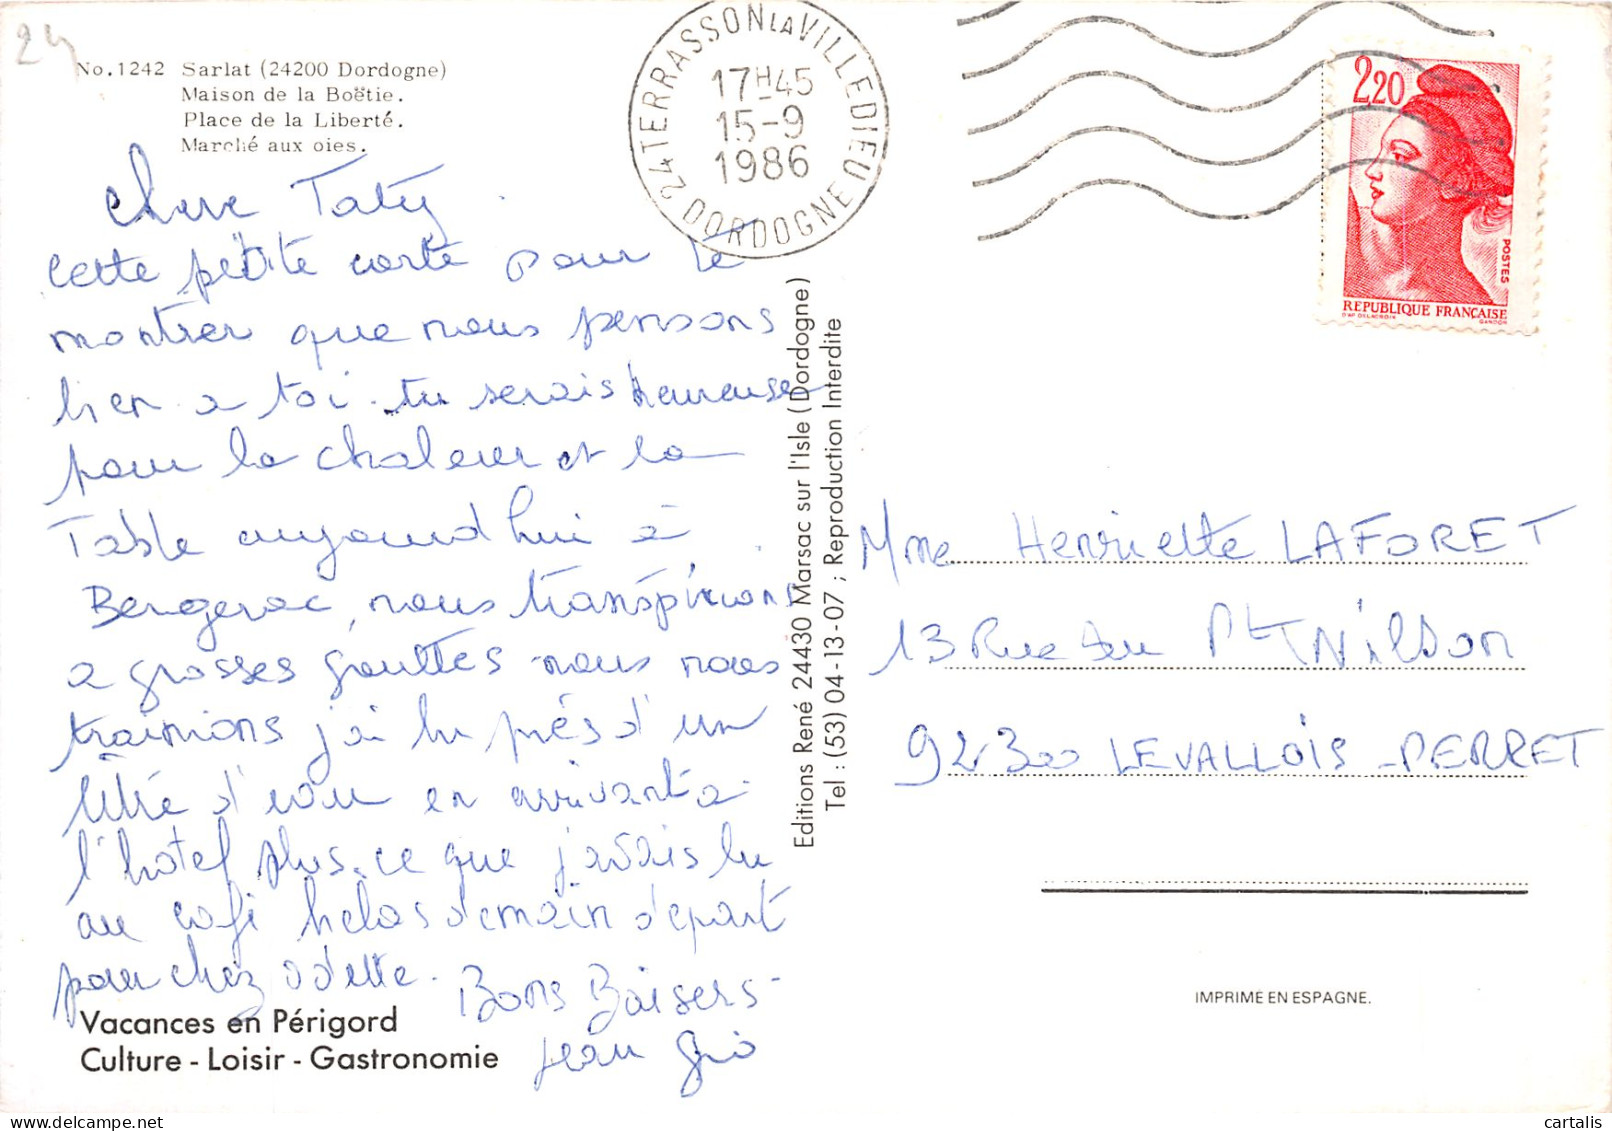 24
No.1242 Sarlat (24200 Dordogne)
Maison de la Boëtie.
Place de la Liberté.
Marché aux oies.
24 TERRASSON LA VILLEDIEU
17H45
15-9
1986
DORDOGNE
2,20
POSTES
REPUBLIQUE FRANÇAISE
D'AP. DELACROIX GANDON
Chere Taty
cette petite carte pour te
montrer que nous pensons
bien a toi. tu serais heureuse
pour la chaleur et la
Table aujourd hui à
Bergerac, nous transpirions
a grosses gouttes nous nous
trainions j'ai bu près d'un
litre d'eau en arrivant a
l'hotel plus ce que j'avais bu
au café helas demain départ
pour chez Odette.
Bons Baisers
Jean Gio
Vacances en Périgord
Culture - Loisir - Gastronomie
Editions René 24430 Marsac sur l'Isle (Dordogne)
Tel : (53) 04-13-07 ; Reproduction Interdite
Mme Henriette LAFORET
13 Rue du Pt Wilson
92300 LEVALLOIS-PERRET
IMPRIME EN ESPAGNE.
cartalis